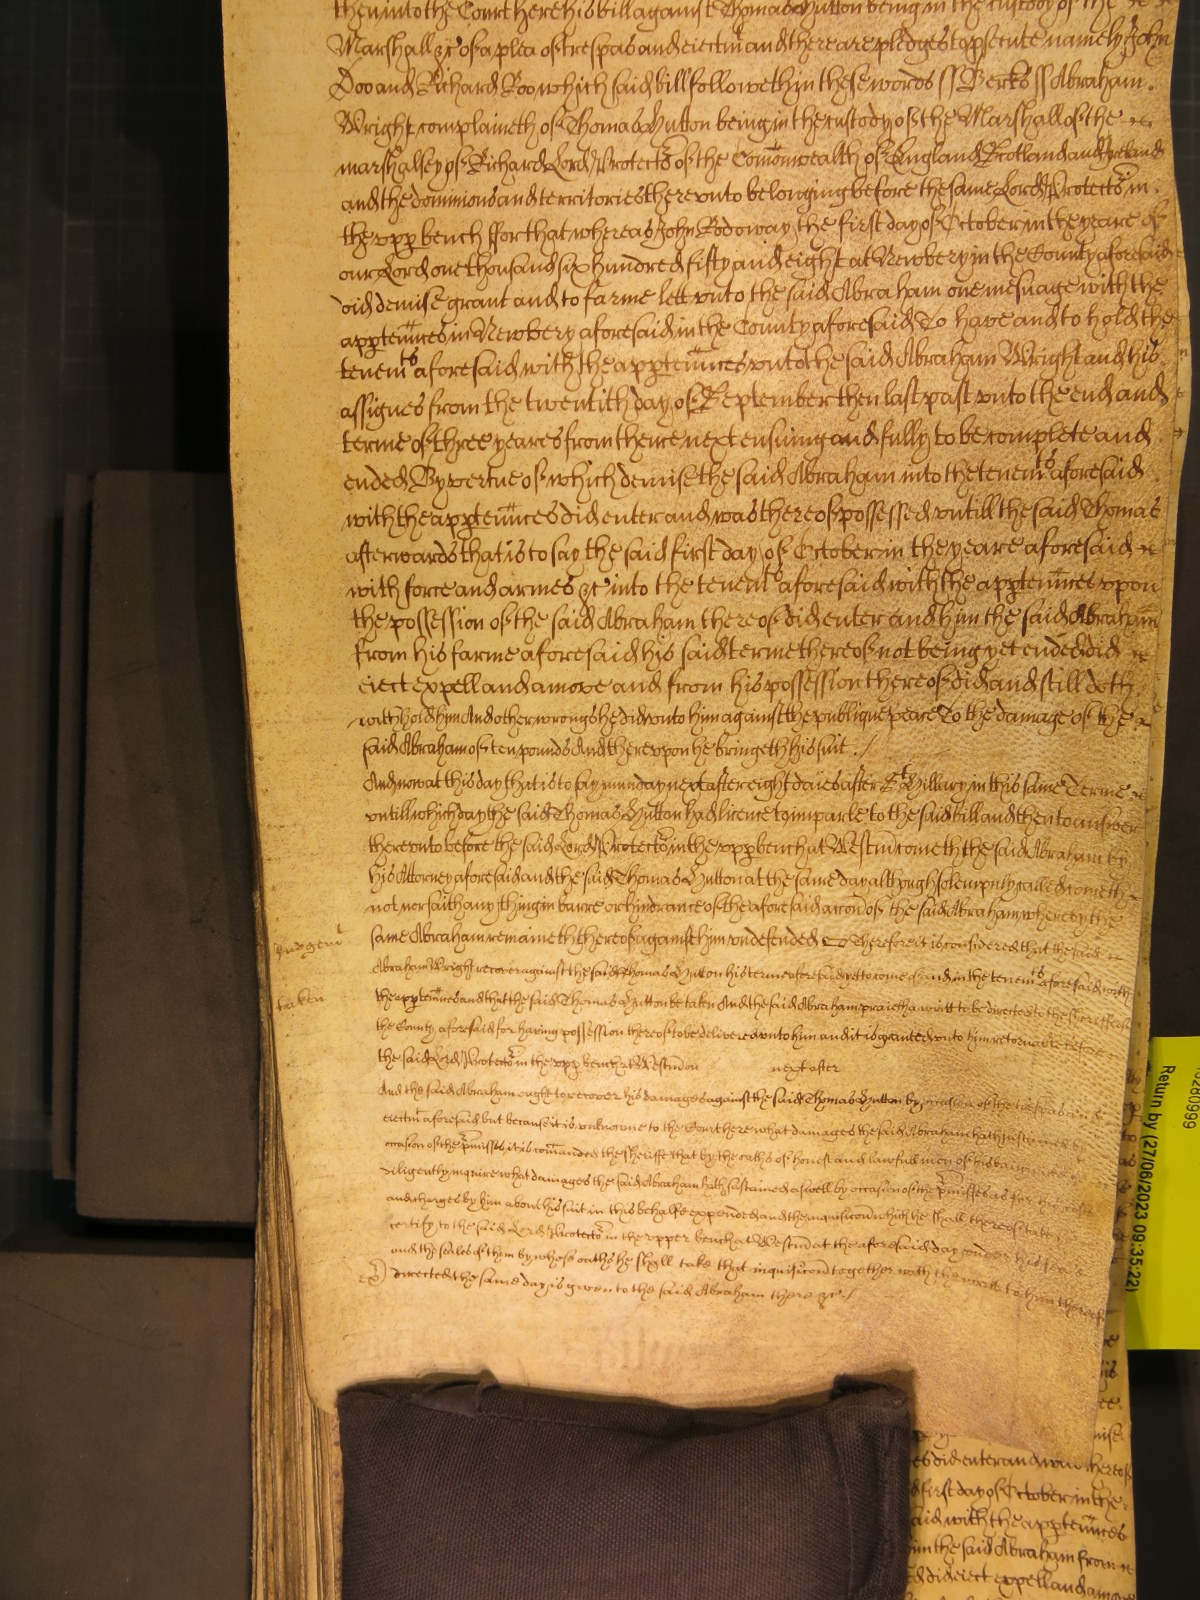 then into the Court here his bill against Thomas Hutton being in the custody of the
Marshall &c of a plea of trespas and eiectmt and there are pledges to psecute namely John
Doo and Richard Roo which said bill followeth in these words ss Berks ss Abraham
Wright complaineth of Thomas Hutton being in the custody of the Marshall of the
marshalsey of Richard Lord Protector of the Comonwealth of England Scotland and Ireland
and the dominions and territories therevnto belonging before the same Lord Protector in
the vpp bench ffor that whereas John Rodoway the first day of October in the yeare of
our Lord one thousand six hundred fifty and eight at Newbery in the County aforesaid
did demise grant and to farme lett vnto the said Abraham one mesuage with the
apptenñces in Newbery aforesaid in the County aforesaid To have and to hold the
tenemts aforesaid with the apptenñces vnto the said Abraham Wright and his
assignes from the twentith day of September then last past vnto the end and
terme of three yeares from thence next ensuing and fully to be complete and
ended By vertue of which demise the said Abraham into the tenemts aforesaid
with the apptenñces did enter and was thereof possessed vntill the said Thomas
afterwards that is to say the said first day of October in the yeare aforesaid
with force and armes &c into the tenemts aforesaid with the apptenñces vpon
the possession of the said Abraham thereof did enter and him the said Abraham
from his farme aforesaid his said terme thereof not being yet ended did
eiect expell and amove and from his possession thereof did and still doth
withhold him And other wrongs he did vnto him against the publique peace To the damage of the
said Abraham of ten pounds And therevpon he bringeth his suit ./
And now at this day that is to say munday next after eight daies after St Hillary in this same Terme
vntill which day the said Thomas Hutton had licence to imparle to the said bill and then to answer
therevnto before the said Lord Protector in the vpp bench at Westm cometh the said Abraham by
his Attorney aforesaid and the said Thomas Hutton at the same day although solempnly called cometh
not nor saith any thing in barre or hindrance of the aforesaid accon of the said Abraham whereby the
Judgemt
same Abraham remaineth thereof against him vndefended Therefore it is considered that the said
Abraham Wright recover against the said Thomas Hutton his terme aforesaid yett to come of and in the tenemts aforesaid with
taken
the apptenñces and that the said Thomas Hutton be taken And the said Abraham praieth a writt to be directed to the Sheriffe of
the County aforesaid for having possession thereof to be delivered vnto him and it is granted vnto him retornable before
the said Lord Protector in the vpp bench at Westm on next after
And the said Abraham ought to recover his damages against the said Thomas Hutton by occasion of the trespas and
eiectmt aforesaid but because it is vnknowne to the Court here what damages the said Abraham hath susteined by
occasion of the pmisses it is comanded the sheriffe that by the oathes of honest and lawfull men of his bailiwick
diligently inquire what damages the said Abraham hath sustained aswell by occasion of the pmisses as for his costs
and charges by him about his suit in this behalfe expended and the inquisicon which he shall thereof take
certify to the said Lord Protector in the vpper bench at Westm at the aforesaid day vnder his seale
and the seales of them by whose oathes he shall take that inquisicon together with the writt to him thereof
directed the same day is given to the said Abraham there &c /
es did enter and was thereof
first day of October in the
aid with the apptenñces
him the said Abraham from
did eiect expell and amove
Return by (27/06/2023 09:35:22)